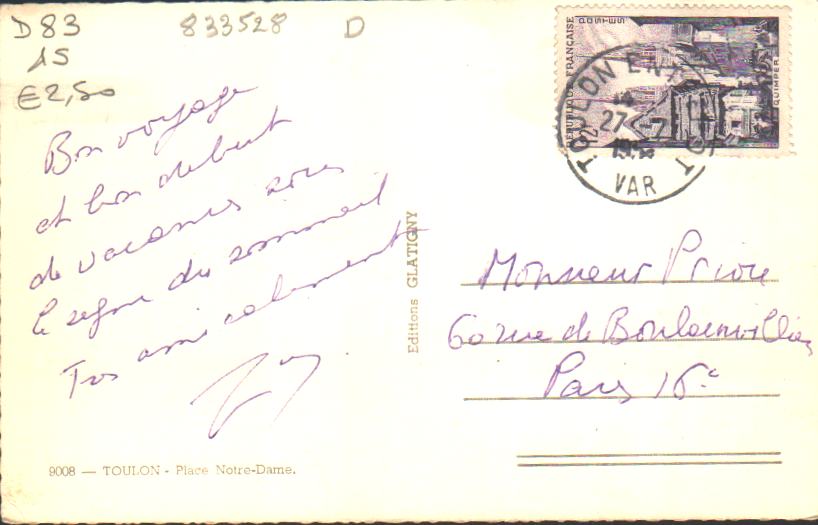 D83
833528
D
15
€2,50
Bon voyage
et bon debut
de vacances sous
le signe du sommeil
Très amicalement
Editions GLATIGNY
9008 — TOULON - Place Notre-Dame.
POSTES
RÉPUBLIQUE FRANÇAISE
QUIMPER
12F
TOULON
27 - 7
VAR
Monsieur Priou
60 rue de Boulainvilliers
Paris 16e